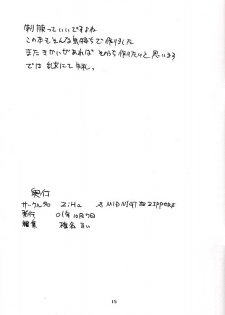 制服っていいですよね
この本はそんな気持ちで作りました
またきかいがあれば そのうち作りたいと思います
では 乱文にて 失礼。
奥付
サークル名 ZiHa & MIDNIGHT ZIPPERS
発行 01年10月7日
編集 椎名るい
15